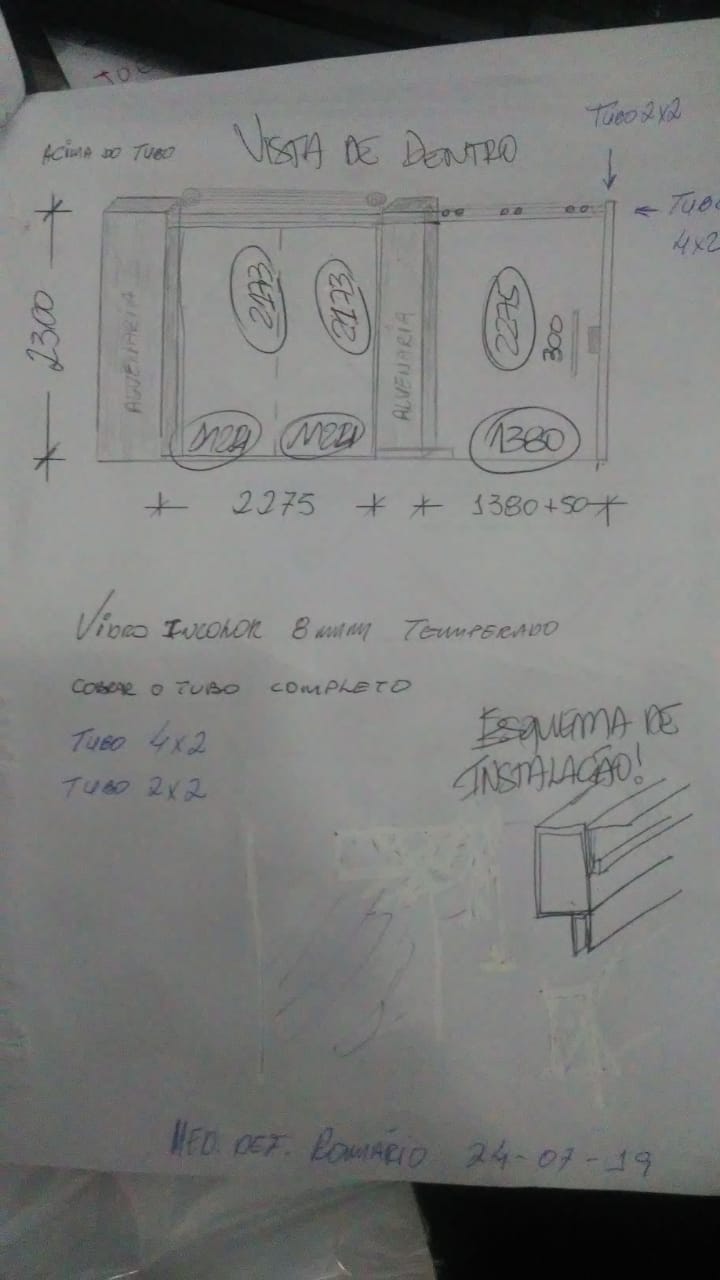 TOC
TUBO 2X2
ACIMA DO TUBO
VISTA DE DENTRO
TUBO
4X2
2300
ALVENARIA
2173
2173
ALVENARIA
2275
300
1380
2275
1380+50
VIDRO INCOLOR 8mm TEMPERADO
COBRAR O TUBO COMPLETO
TUBO 4X2
TUBO 2X2
ESQUEMA DE
INSTALAÇÃO!
MED. DEF. ROMÁRIO 24-07-19